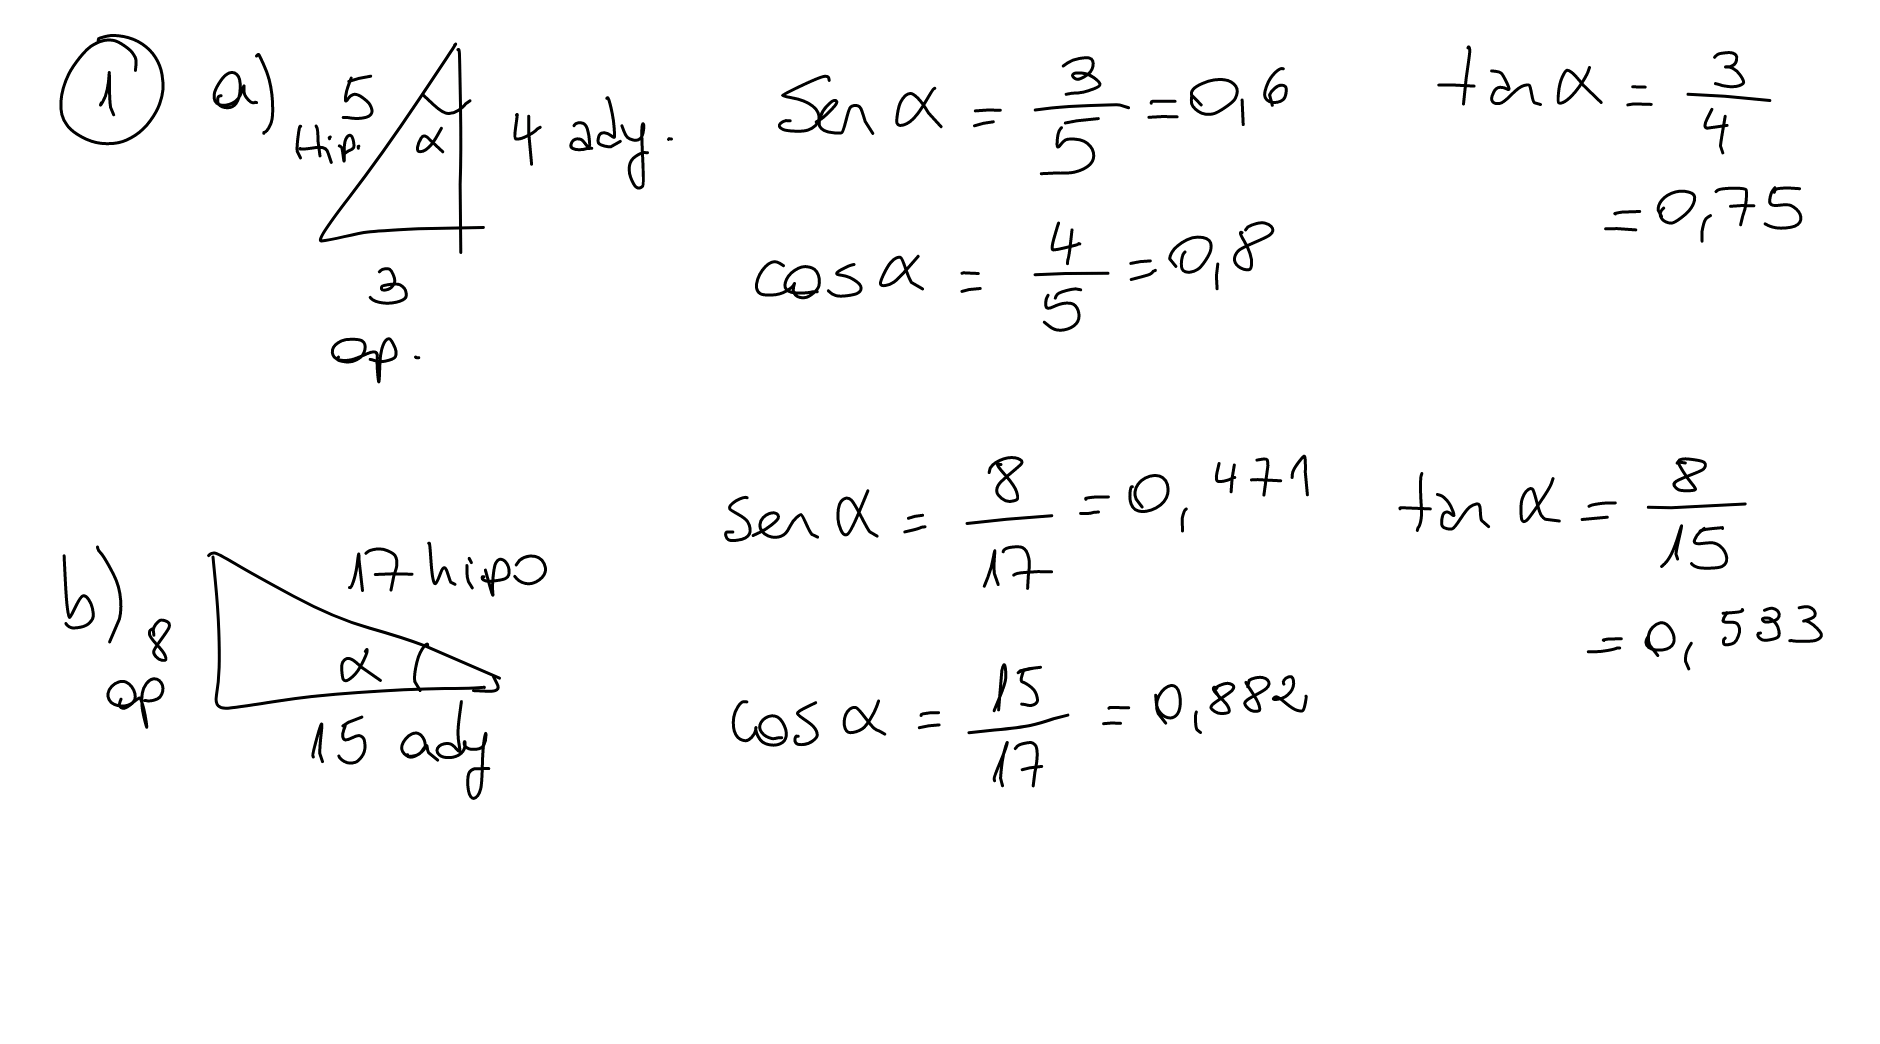 1 a) 5 Hip. α 4 ady.
3
op.
sen α = 3/5 = 0,6
cos α = 4/5 = 0,8
tan α = 3/4
= 0,75
b) 8 op 17 hipo
α
15 ady
sen α = 8/17 = 0,471
cos α = 15/17 = 0,882
tan α = 8/15
= 0,533